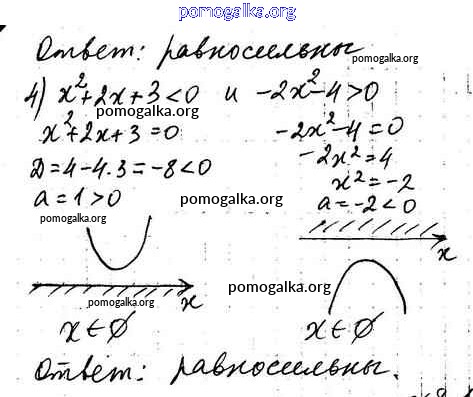 pomogalka.org
Ответ: равносильны
pomogalka.org
4) x²+2x+3<0 и -2x²-4>0
pomogalka.org
x²+2x+3=0
-2x²-4=0
Д=4-4·3=-8<0
-2x²=4
x²=-2
a=1>0
pomogalka.org
a=-2<0
pomogalka.org
x
pomogalka.org
pomogalka.org
x
x∈∅
x∈∅
Ответ: равносильны.